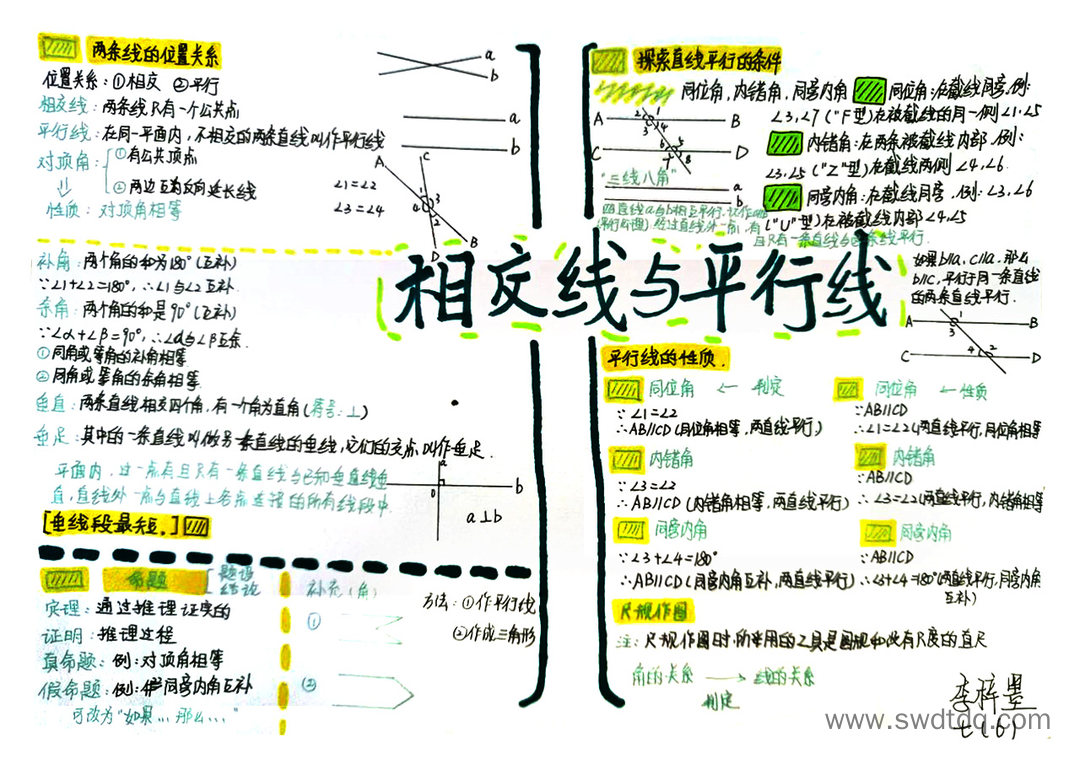 两条线的位置关系
位置关系：①相交 ②平行
相交线：两条线只有一个公共点
平行线：在同一平面内，不相交的两条直线叫作平行线
对顶角：①有公共顶点
②两边互为反向延长线
性质：对顶角相等
∠1=∠2
∠3=∠4
a
b
a
b
A
C
1
3
4
2
D
B
补角：两个角的和为180°(互补)
∵∠1+∠2=180°，∴∠1与∠2互补
余角：两个角的和是90°(互补)
∵∠α+∠β=90°，∴∠α与∠β互余
①同角或等角的补角相等
②同角或等角的余角相等
垂直：两条直线相交四个角，有一个角为直角(符号：⊥)
垂足：其中的一条直线叫做另一条直线的垂线，它们的交点叫作垂足.
平面内，过一点有且只有一条直线与已知直线垂
直，直线外一点与直线上各点连接的所有线段中
[垂线段最短.]
a
o
b
a⊥b
命题
题设
结论
定理：通过推理证实的
证明：推理过程
真命题：例：对顶角相等
假命题：例：同旁内角互补
可改为"如果...那么..."
补充(角)
①
②
方法：①作平行线
②作成三角形
相交线与平行线
探索直线平行的条件
同位角，内错角，同旁内角
同位角：在截线同旁，例：
∠3,∠7 ("F"型)在被截线的同一侧∠1,∠5
内错角：在两条被截线内部，例：
∠3,∠5 ("Z"型)在截线两侧∠4,∠6.
同旁内角：在截线同旁，例：∠3,∠6
("U"型)在被截线内部∠4,∠5
A
B
C
D
"三线八角"
a
b
经过直线外一点，有
且只有一条直线与这条线平行.
如果b//a，c//a，那么
b//c，平行于同一条直线
的两条直线平行.
A
B
C
D
1
3
4
2
平行线的性质.
同位角 ← 判定
∵∠1=∠2
∴AB//CD(同位角相等，两直线平行)
内错角
∵∠3=∠2
∴AB//CD(内错角相等，两直线平行)
同旁内角
∵∠3+∠4=180°
∴AB//CD(同旁内角互补，两直线平行)
同位角 ← 性质
∵AB//CD
∴∠1=∠2(两直线平行，同位角相等
内错角
∵AB//CD
∴∠3=∠2(两直线平行，内错角相等
同旁内角
∵AB//CD
∴∠3+∠4=180°(两直线平行，同旁内角
互补)
尺规作图
注：尺规作图时所使用的工具是圆规和没有尺度的直尺
角的关系 → 线的关系
判定
李梓墨
七(6)
www.swdtdq.com